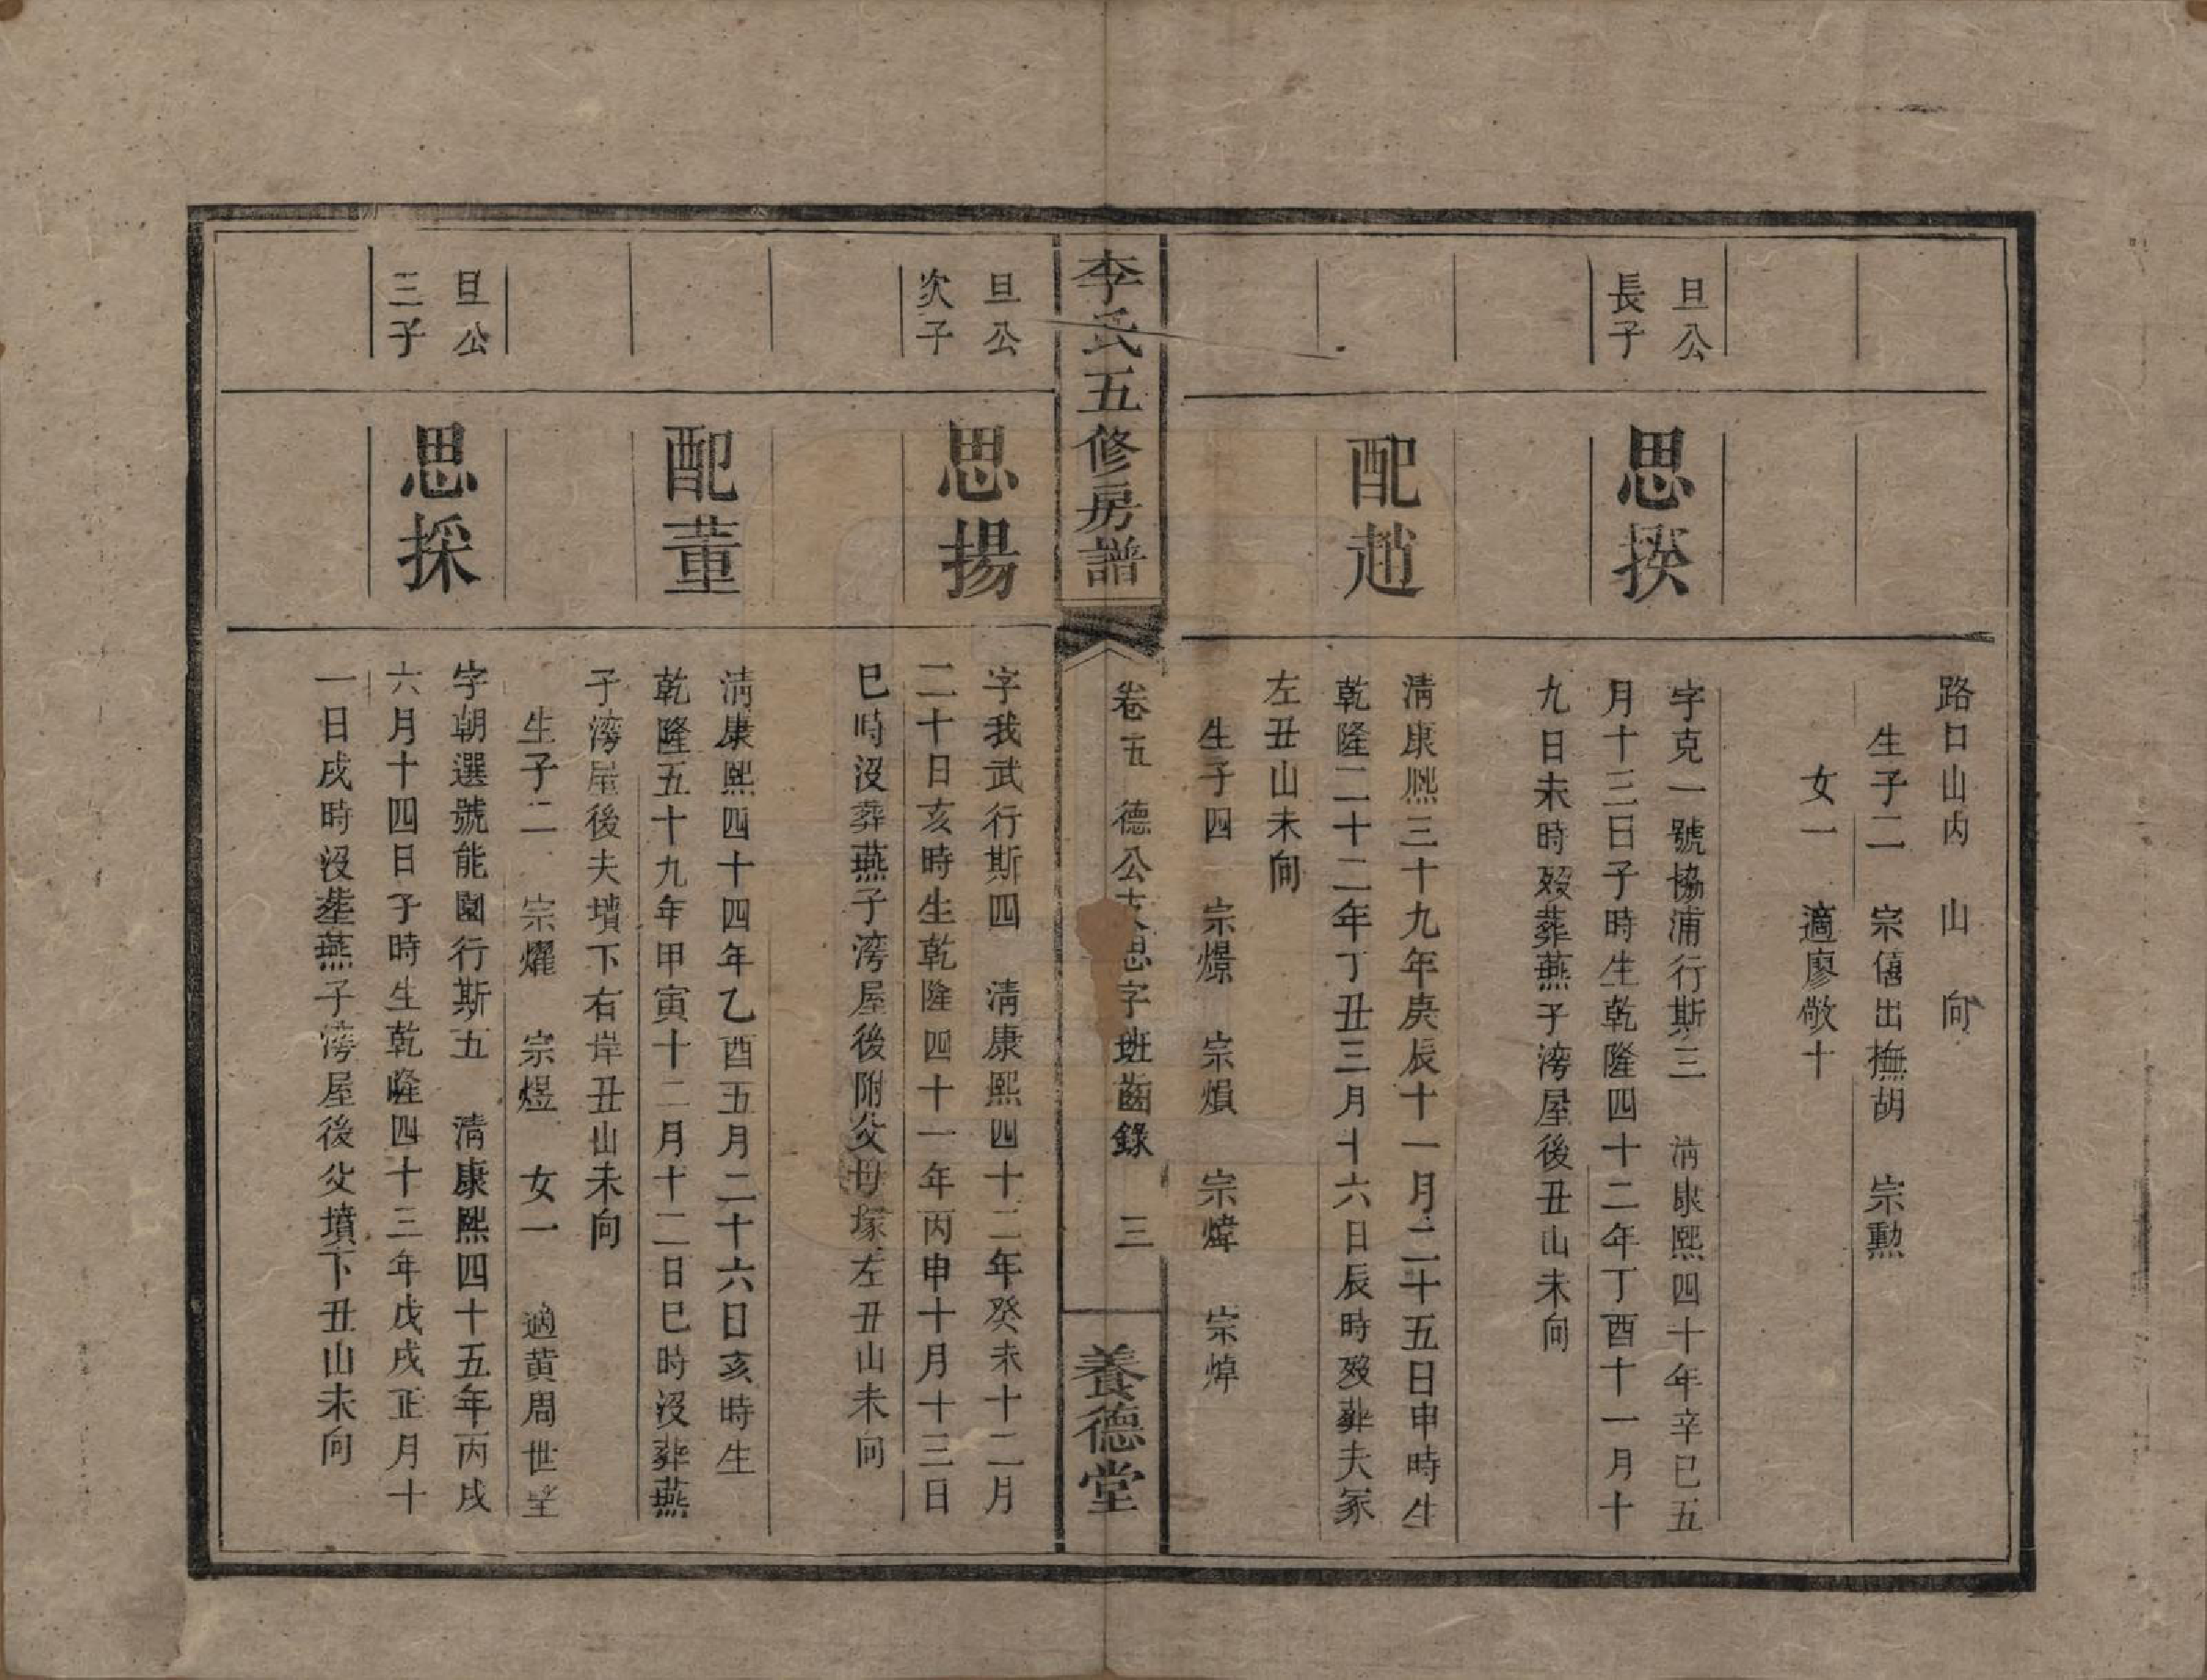 路口山內　山　向
生子二　宗僖出撫胡　宗勳
女一　適廖敬十
旦公
長子
思揆
字克一號協浦行斯三　淸康熙四十年辛巳五
月十三日子時生乾隆四十二年丁酉十一月十
九日未時歿葬燕子湾屋後丑山未向
配趙
淸康熙三十九年庚辰十一月二十五日申時生
乾隆二十二年丁丑三月十六日辰時歿葬夫冢
左丑山未向
生子四　宗燝　宗熉　宗煒　宗焯
李氏五修房譜
卷五　德公支思字班齒錄　三
養德堂
旦公
次子
思揚
字我武行斯四　淸康熙四十二年癸未十二月
二十日亥時生乾隆四十一年丙申十月十三日
巳時沒葬燕子湾屋後附父母塚左丑山未向
配董
淸康熙四十四年乙酉五月二十六日亥時生
乾隆五十九年甲寅十二月十二日巳時沒葬燕
子湾屋後夫墳下右岸丑山未向
生子二　宗燿　宗煜　女一　適黄周世
旦公
三子
思採
字朝選號能園行斯五　淸康熙四十五年丙戌
六月十四日子時生乾隆四十三年戊戌正月十
一日戌時沒塟燕子湾屋後父墳下丑山未向